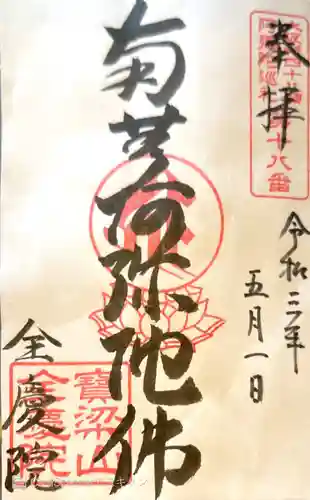 奉拝
令和三年
五月一日
南無阿弥陀佛
全慶院
寶梁山
全慶院
十八番